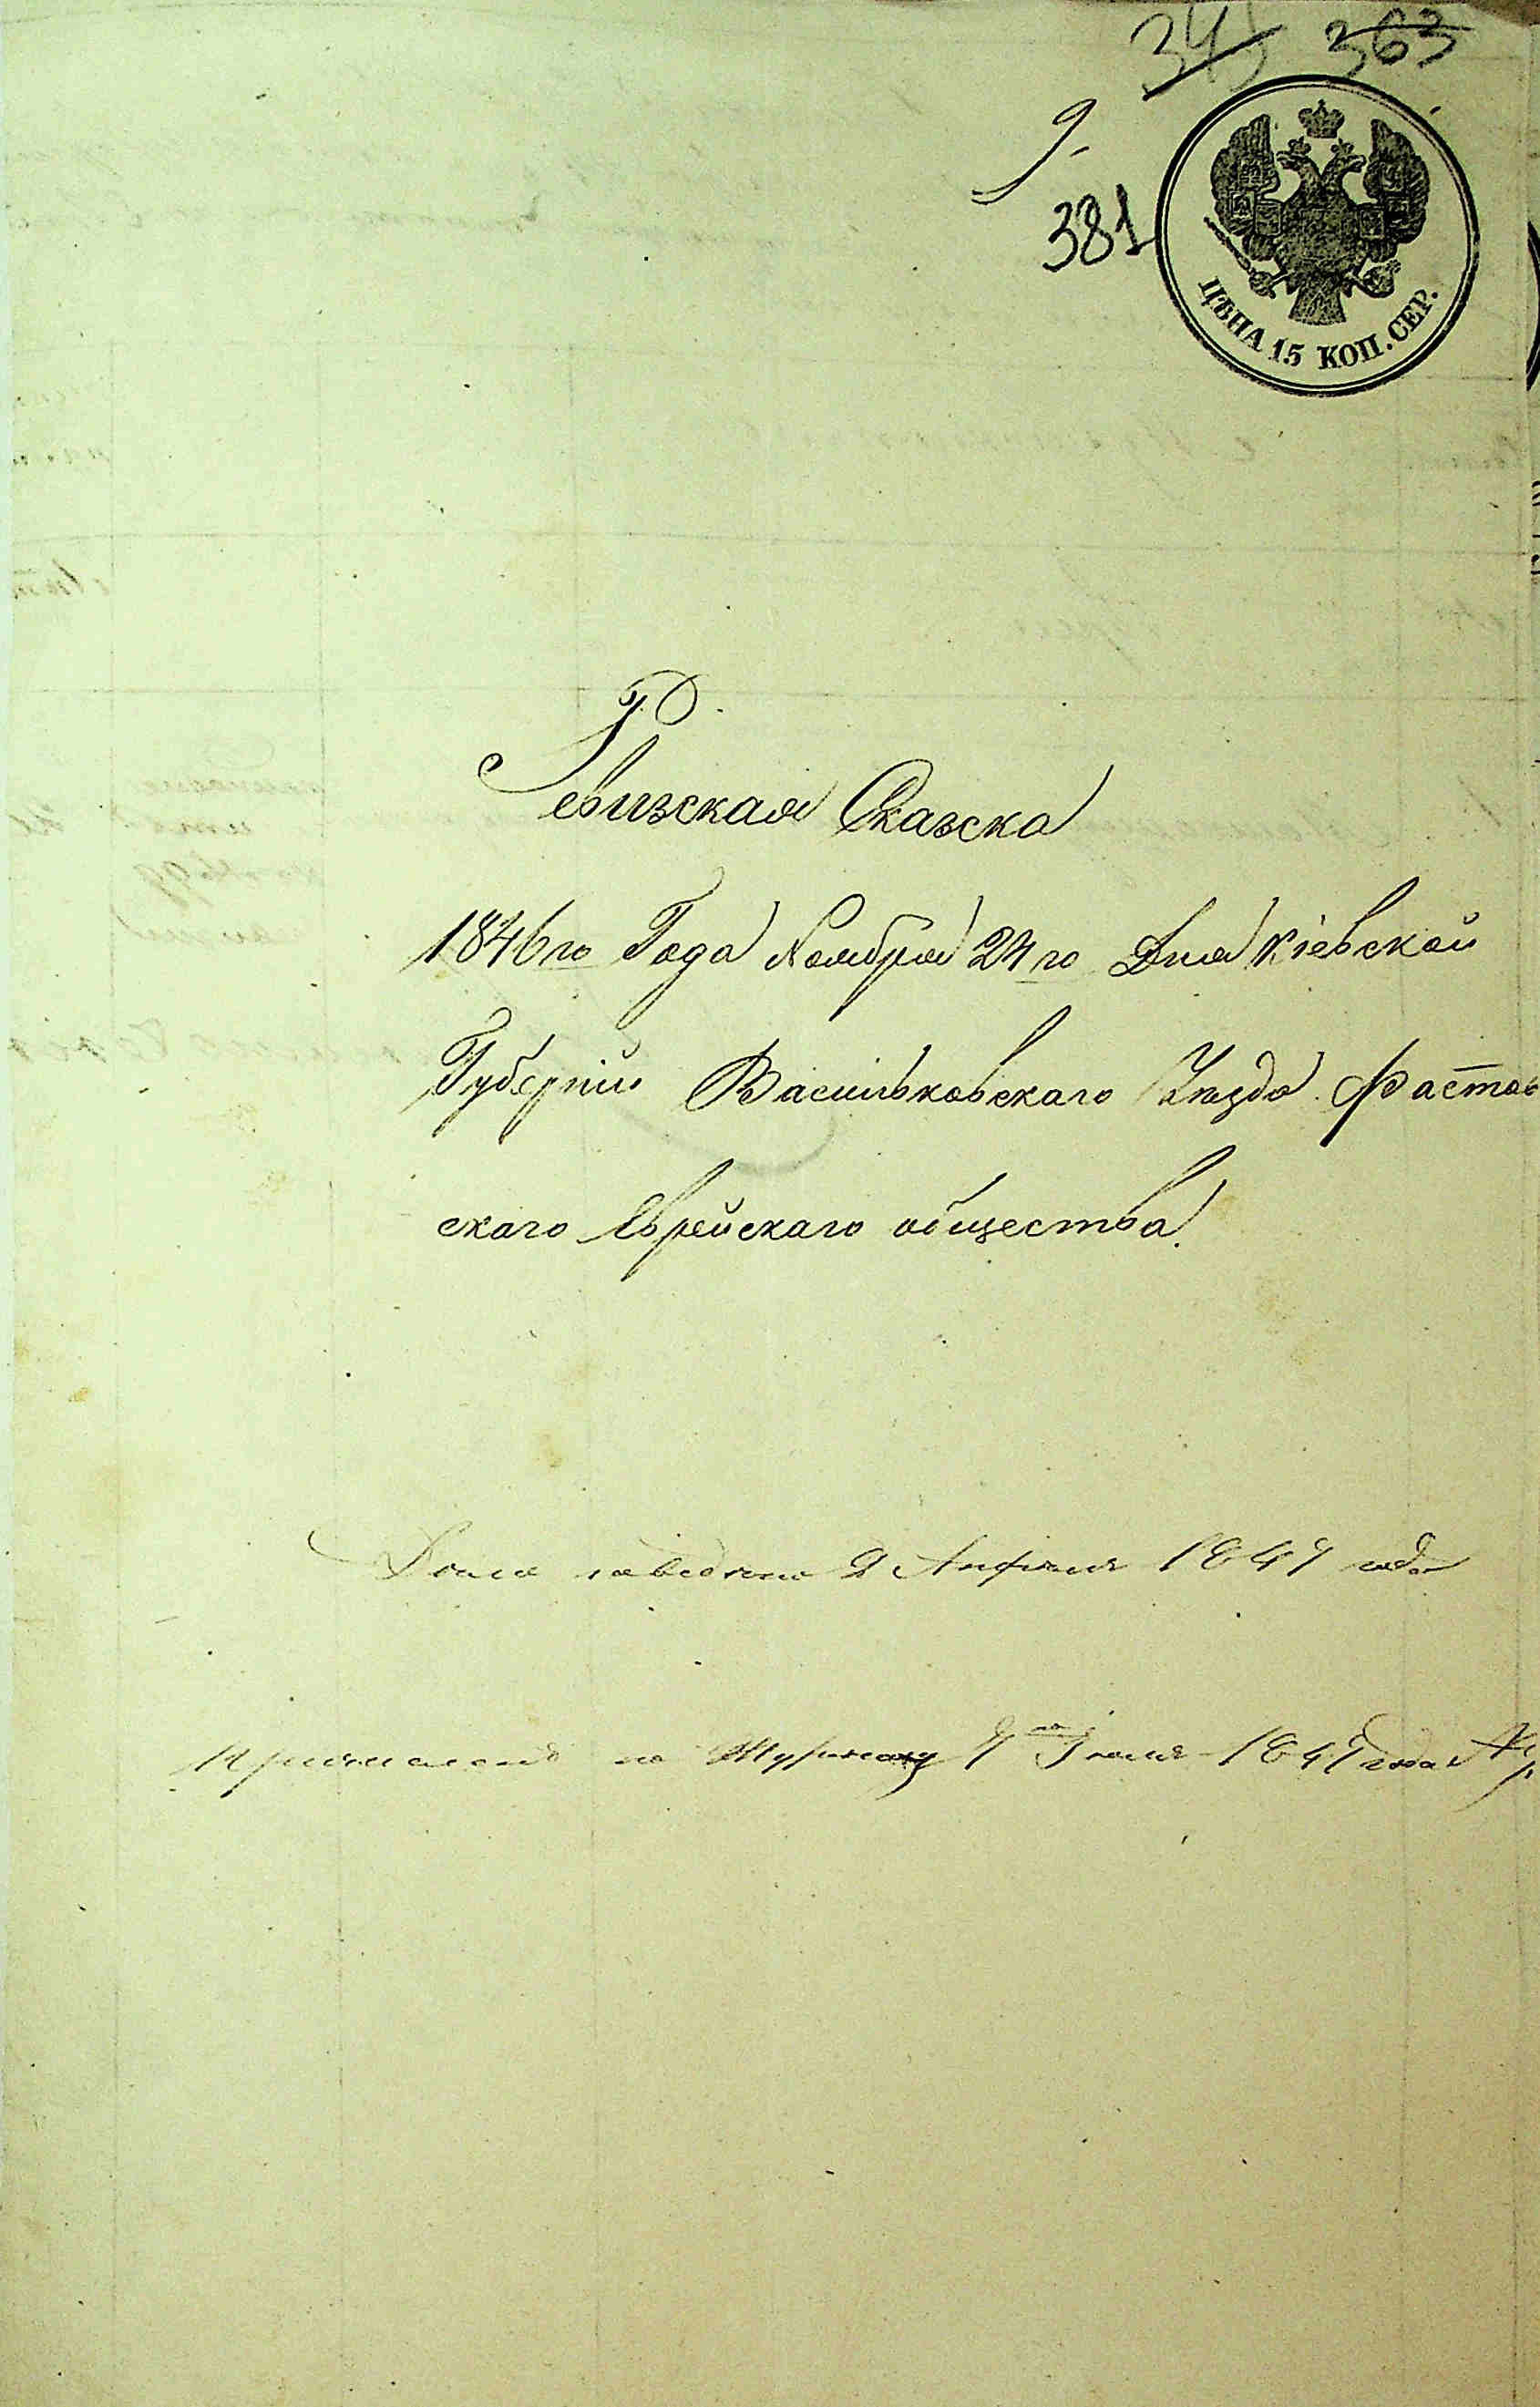 345 363
9.
381
ЦѢНА 15 КОП. СЕР.
Ревизская Сказска
1846го Года Ноября 24го Дня Кіевской
Губерніи Васильковского Уѣзда Фастов
скаго Еврейскаго общества.
2 Апрѣля 1847 года
по Журналу 1847 года